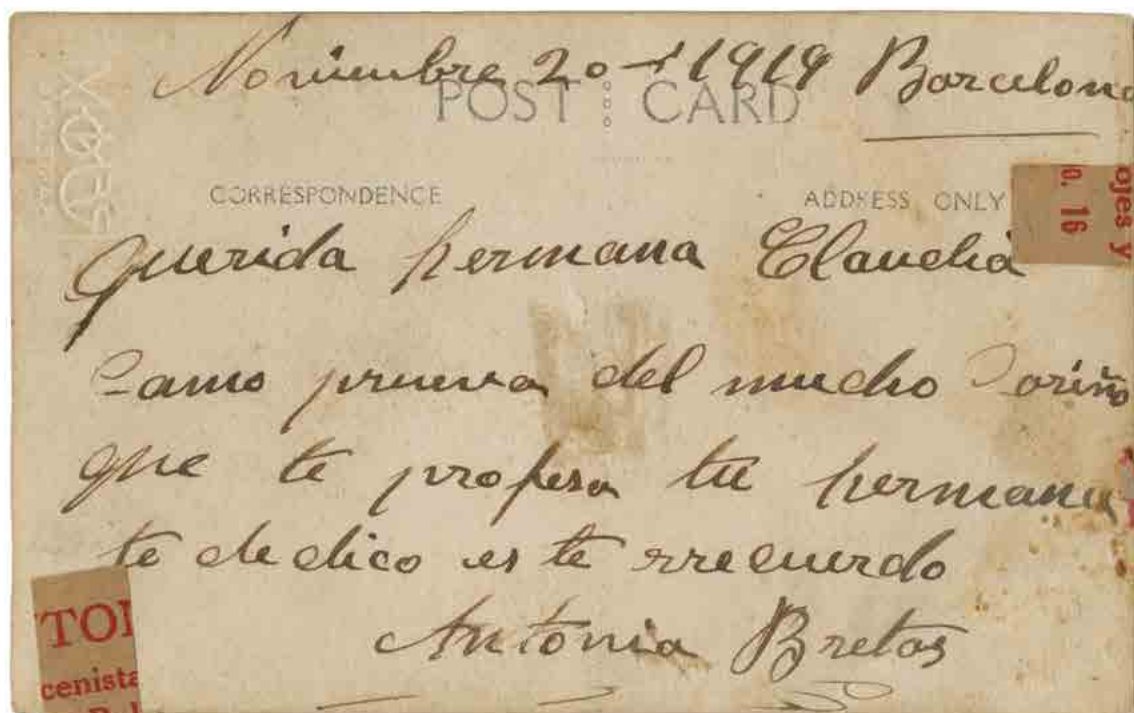 Noviembre 20 - 1919 Barcelona
POST CARD
CORRESPONDENCE
ADDRESS ONLY
ojes y
o. 16
querida hermana Claudia
Como prueva del mucho Cariño
que te profesa tu hermana
te dedico es te rrecuerdo
Antonia Bretos
TO
cenista